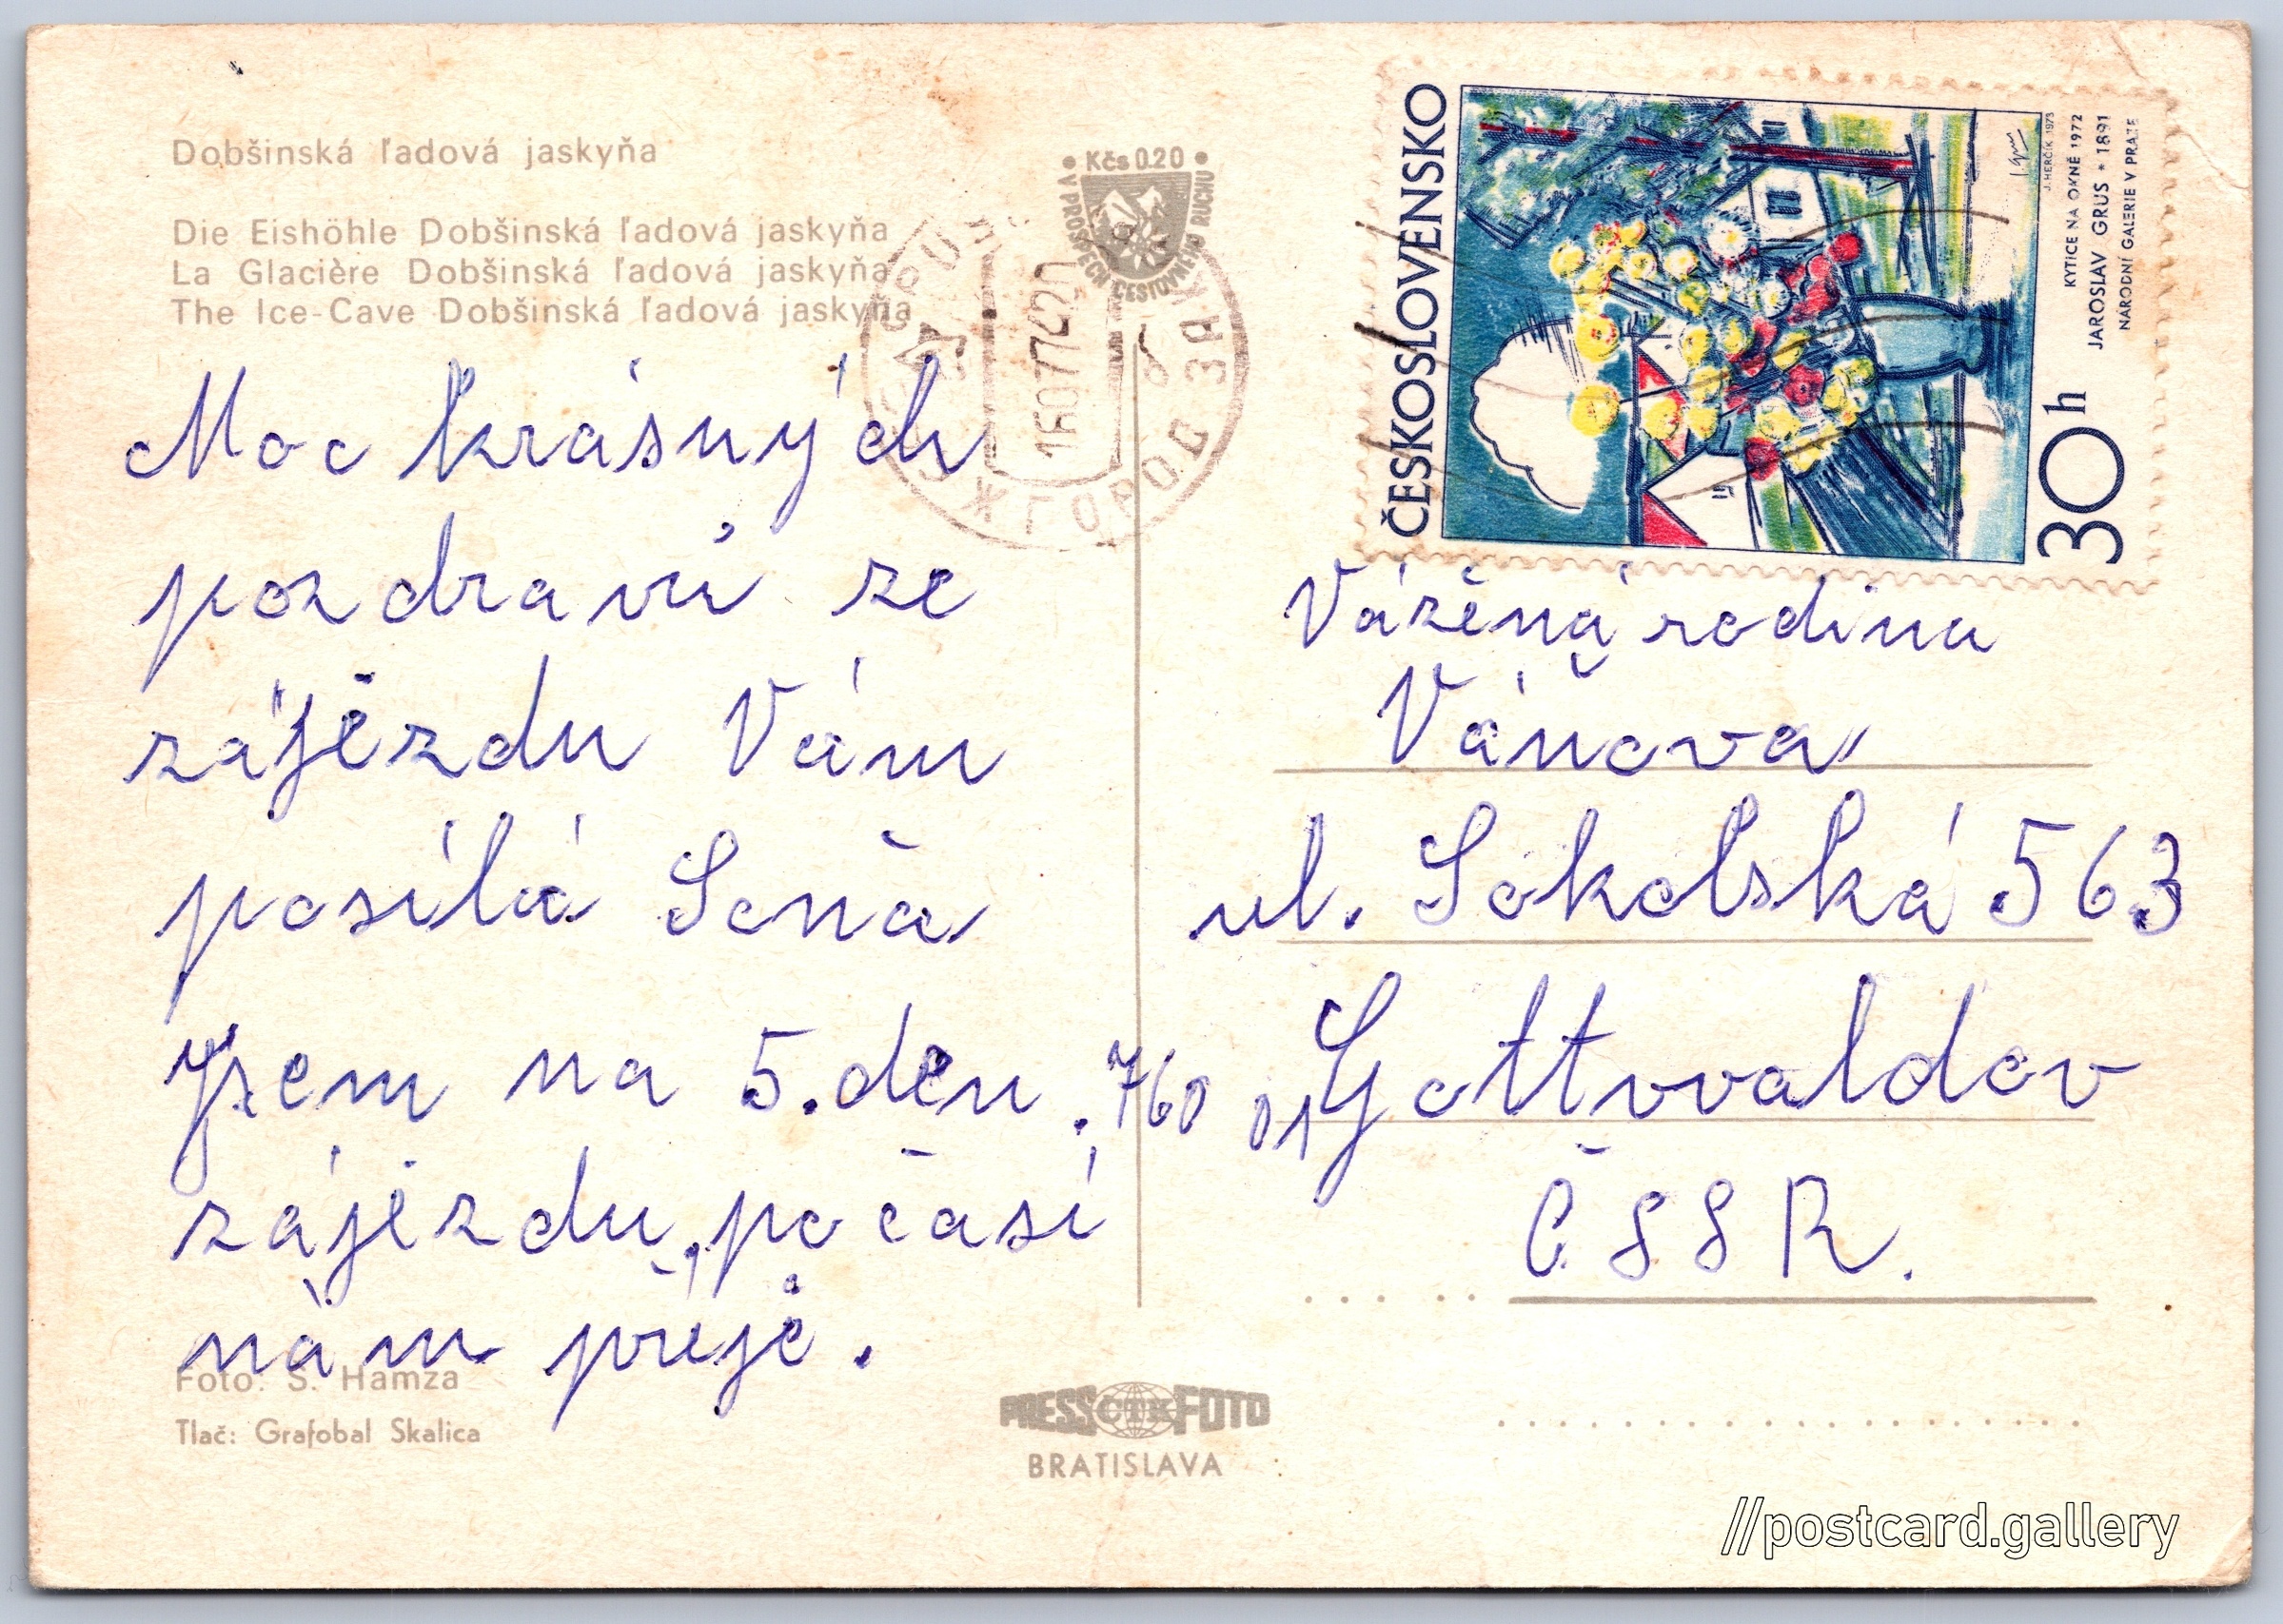 Dobšinská ľadová jaskyňa
Die Eishöhle Dobšinská ľadová jaskyňa
La Glacière Dobšinská ľadová jaskyňa
The Ice-Cave Dobšinská ľadová jaskyňa
Moc krásných
pozdravů ze
zájězdu Vám
posílá Soňa
Jsem na 5. den
zájezdu, počasí
nám přeje.
Foto: S. Hamza
Tlač: Grafobal Skalica
• Kčs 0.20 •
V PROSPECH CESTOVNÉHO RUCHU
СССР
УЖГОРОД ЗАК
160774
PRESS ČTK FOTO
BRATISLAVA
ČESKOSLOVENSKO
J. HERČÍK 1973
KYTICE NA OKNĚ 1972
JAROSLAV GRUS * 1891
NÁRODNÍ GALERIE V PRAZE
30 h
Vážená rodina
Váňova
ul. Sokolská 563
760 01 Gottwaldov
ČSSR.
//postcard.gallery